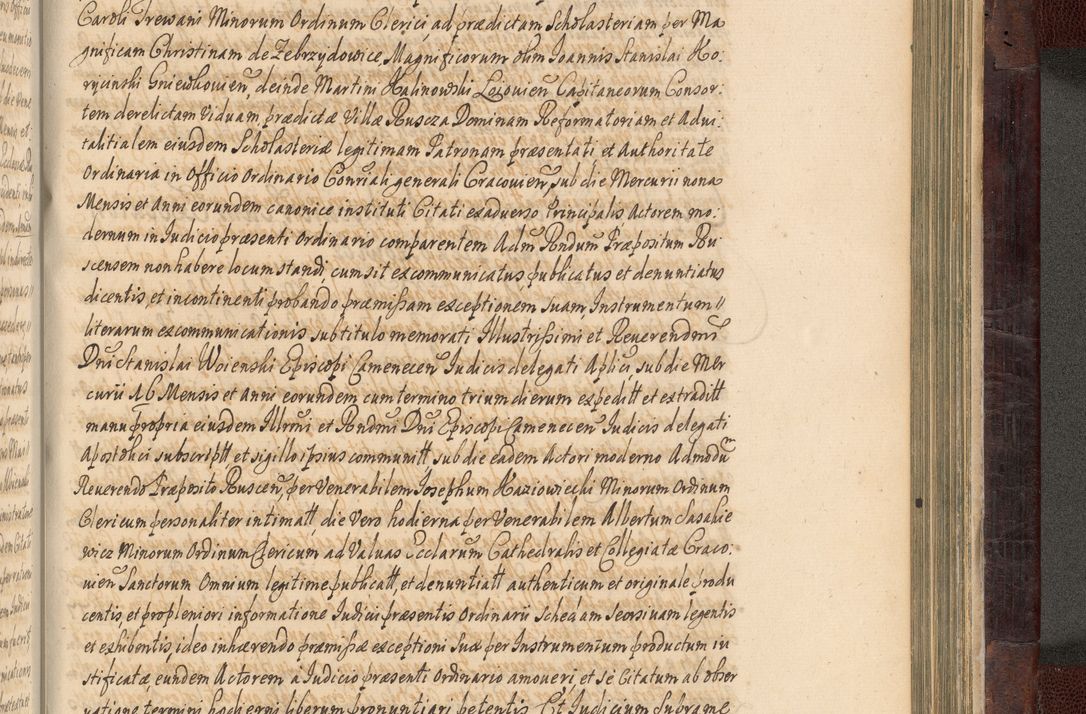 Caroli Trewani Minorum Ordinum Clerici, ad prædictam Scholasteriam per Ma
gnificam Christinam de Zebrzydowice, Magnificorum olim Ioannis Stanislai Ko.
rycinski Gniewkowien, deinde Martini Kalinowski Loiovien Capitaneorum Consor.
tem derelictam Viduam, prædictæ Villæ Ruscza Dominam Reformatoriam et Advi.
talitialem eiusdem Scholasteriæ legitimam Patronam præsentati et Authoritate
Ordinaria in Officio Ordinario Consiali generali Cracovien, sub die Mercurii nona
Mensis et Anni eorundem canonice instituti Citati ex adverso Principalis Actorem mo.
dernum in Iudicio præsenti Ordinario comparentem Adm Rndum Præpositum Ru
scensem non habere locum standi cum sit excommunicatus publicatus et denuntiatus
dicentis et incontinenti probando præmissam exceptionem suam, Instrumentum //
literarum excommunicationis sub titulo memorati Illustrissimi et Reverendmi
Dni Stanislai Woienski Episcopi Camenecen Iudicis delegati Aplici sub die Mer
curii 16 Mensis et Anni eorundem cum termino trium dierum expeditt et extraditt
manu propria eiusdem Illrmi et Rndmi Dni Episcopi Camenecen Iudicis delegati
Apostolici subscriptt et sigillo ipsius communitt sub die eadem Actori moderno Admodum
Reverendo Præposito Ruscen, per Venerabilem Iosephum Kaziowicki Minorum Ordinum
Clericum personaliter intimatt, die vero hodierna per Venerabilem Albertum Sasakie
wicz Minorum Ordinum Clericum ad Valvas Ecclarum Cathedralis et Collegiatæ Craco.
vien Sanctorum Omnium legitime publicatt, et denuntiatt authenticum et originale produ
centis, et pro pleniori informatione Iudicii præsentis Ordinarii Schedam seorsivam legentis
et exhibentis, ideo inhærendo præmissæ exceptioni suæ per Instrumentum productum iu
stificatæ, eundem Actorem a Iudicio præsenti Ordinario amoveri, et se Citatum ab obser
vatione termini hodierni liberum pronuntiari petentis Et Iudicium